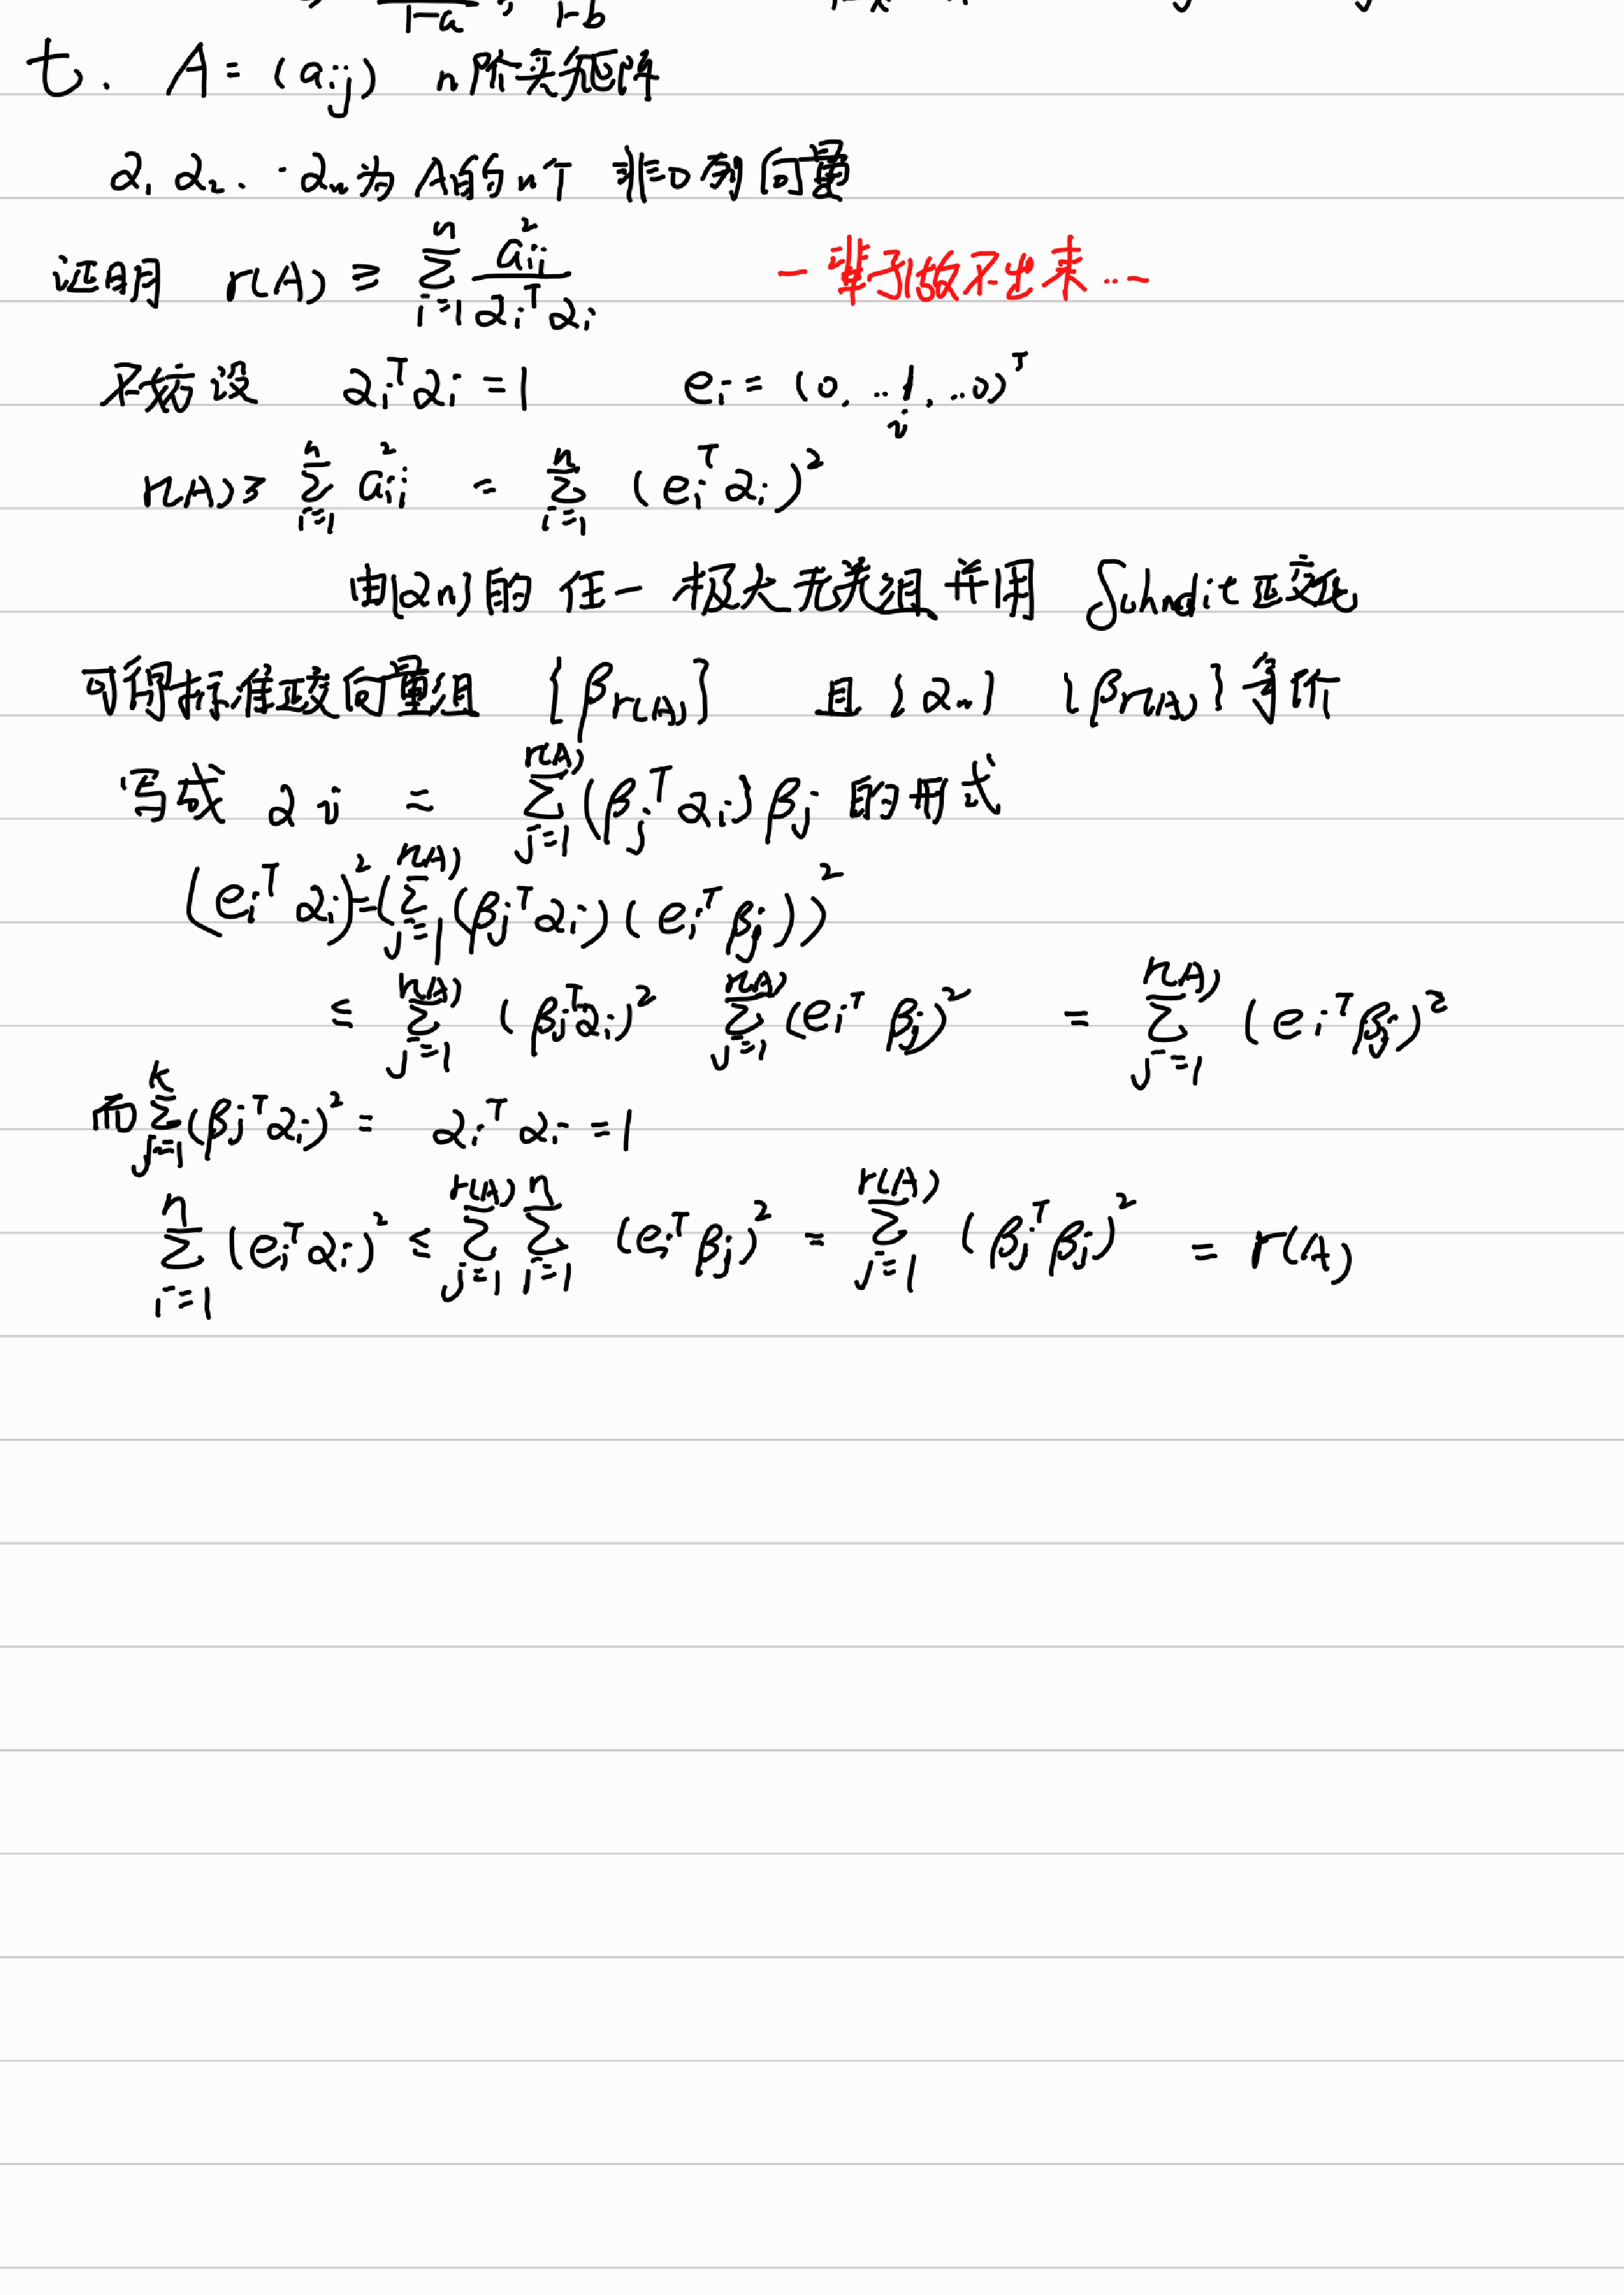 1-a , 1-b
七. A = (aij) n阶实矩阵
α1 α2 .. αn为 A的n个 非0列向量
证明 r(A) ≥ Σ(i=1→n) aii² / αiᵀαi 一辈子做不出来...
不妨设 αiᵀαi = 1 ei = (0. ..1. ..0)ᵀ i
r(A) ≥ Σ(i=1→n) aii² = Σ(i=1→n) (eiᵀαi)²
由{αn}的 任一 极大无关组 并用 Schmdit正交化
可得标准正交向量组 {βr(A)} 且 {αn} {βr(A)}等价
写成 αi = Σ(j=1→r(A)) (βjᵀαi)βj 的形式
(eiᵀαi)² = (Σ(j=1→r(A)) (βjᵀαi)(eiᵀβj))²
≤ Σ(j=1→r(A)) (βjᵀαi)² Σ(j=1→r(A)) (eiᵀβj)² = Σ(j=1→r(A)) (eiᵀβj)²
而 Σ(j=1→k) (βjᵀαi)² = αiᵀαi = 1
Σ(i=1→n) (eiᵀαi)² ≤ Σ(j=1→r(A)) Σ(i=1→n) (eiᵀβj)² = Σ(j=1→r(A)) (βjᵀβj)² = r(A)